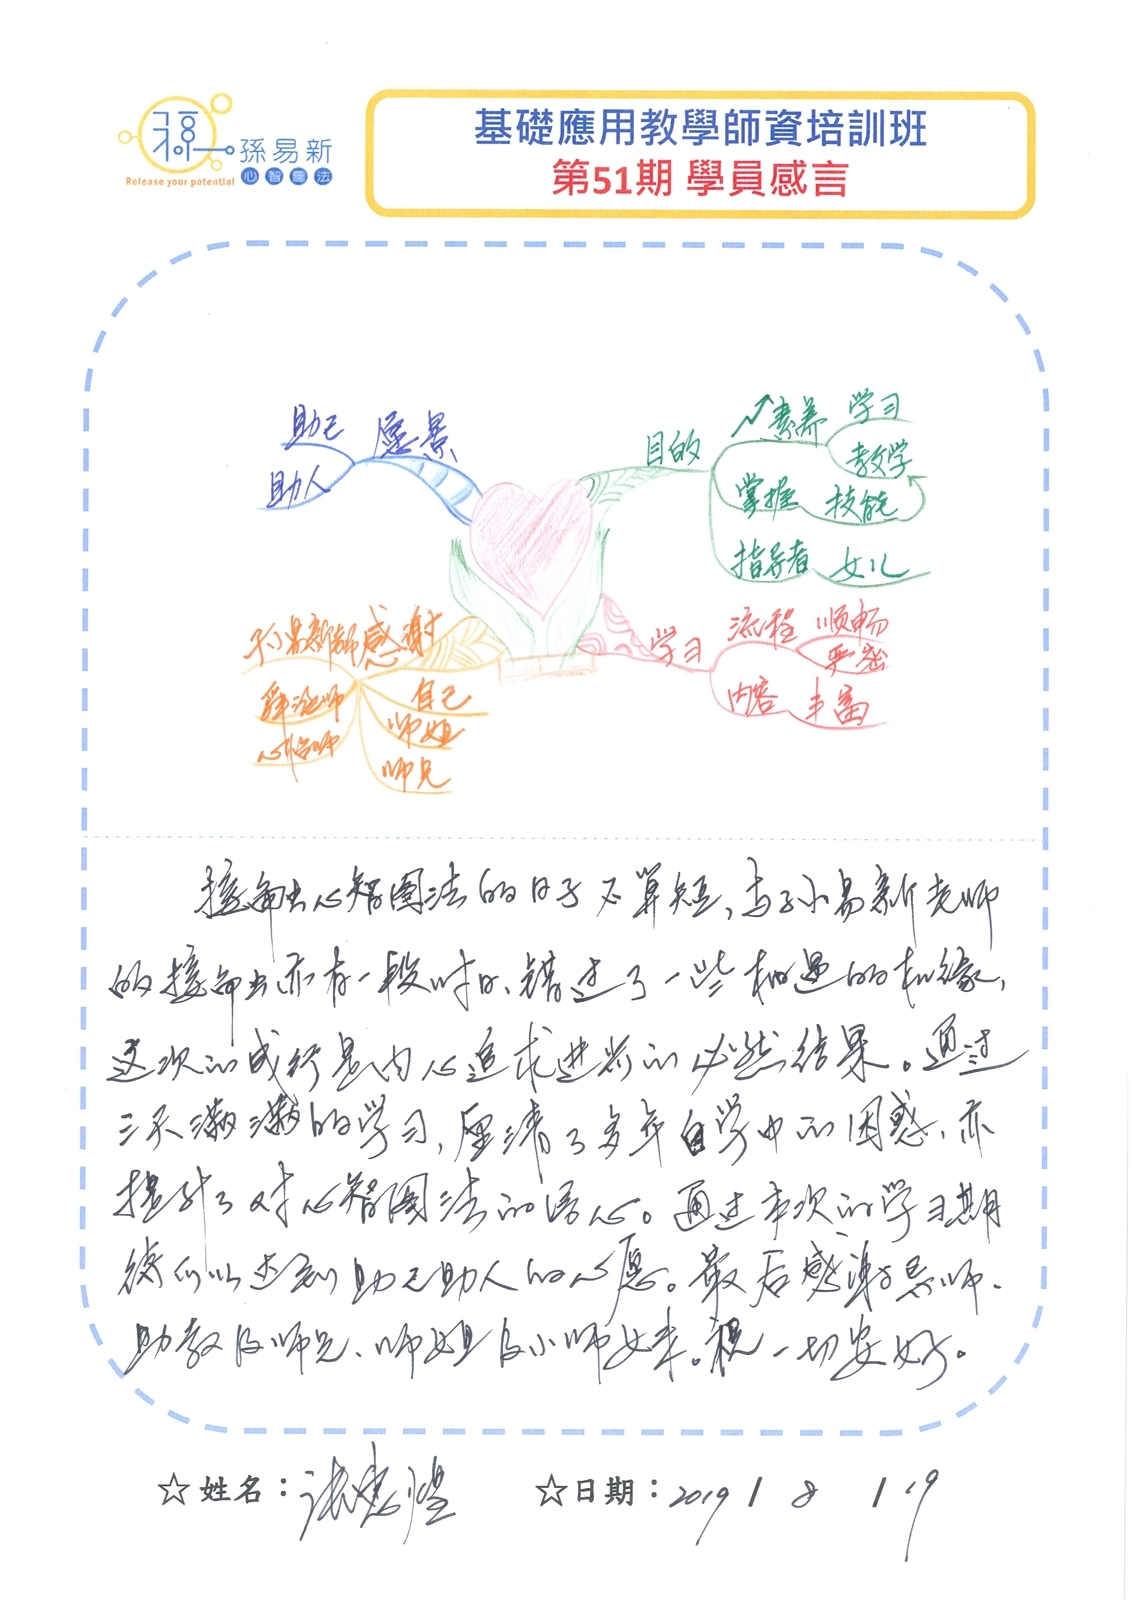 孫易新
心智圖法
Release your potential
基礎應用教學師資培訓班
第51期 學員感言
助己 愿景
助人
目的
素养 学习
教学
掌握 技能
指导者 女儿
学习
流程 顺畅
严密
内容 丰富
孙易新师 感谢
自己
师姐
心怡师
师兄
接触心智图法的日子不算短，与孙易新老师
的接触亦有一段时日、错过了一些相遇的机缘，
这次的成行是内心追求进步的必然结果。通过
三天满满的学习，厘清了多年自学中的困惑、亦
提升了对心智图法的信心。通过本次的学习期
待可以达到助己助人的心愿。最后感谢导师、
助教及师兄、师姐及小师妹。祝一切安好。
☆姓名：
☆日期：2019 / 8 / 19